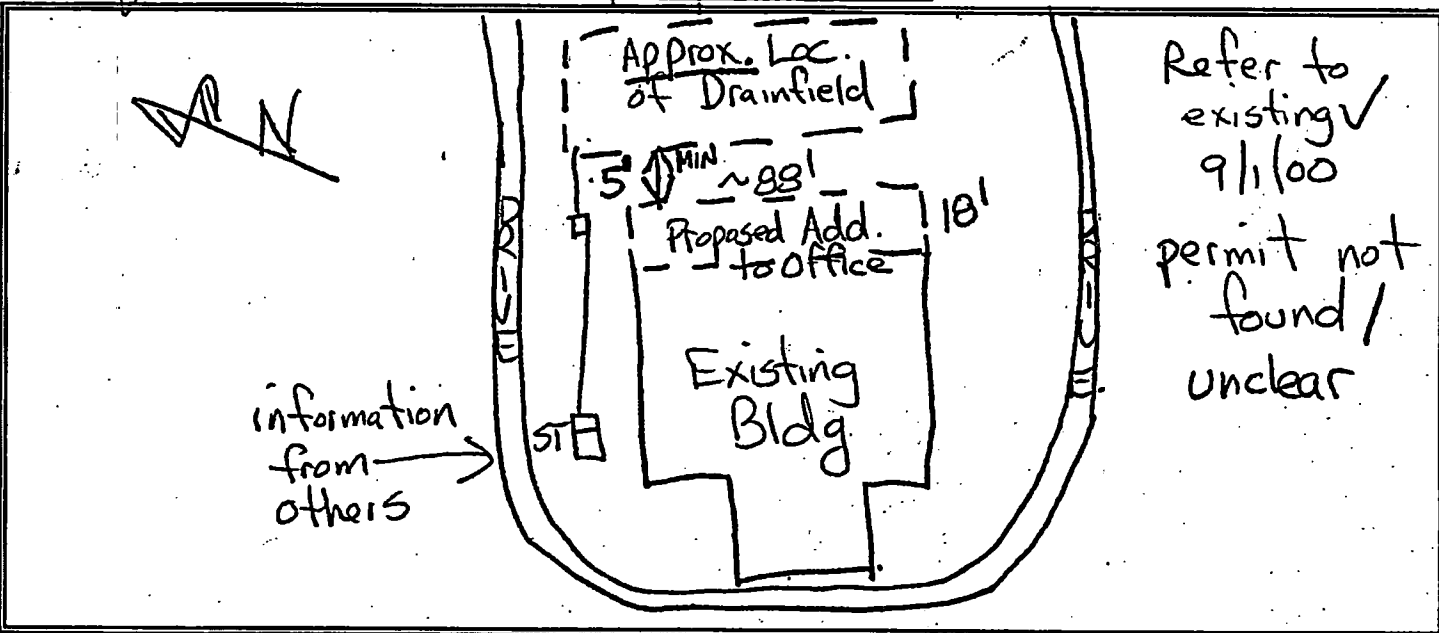 N
Approx. Loc.
of Drainfield
5' MIN ~88'
18'
Proposed Add.
to Office
Existing
Bldg
DRIVE
DRIVE
ST
information
from
others
Refer to
existing ✓
9/1/00
permit not
found /
unclear